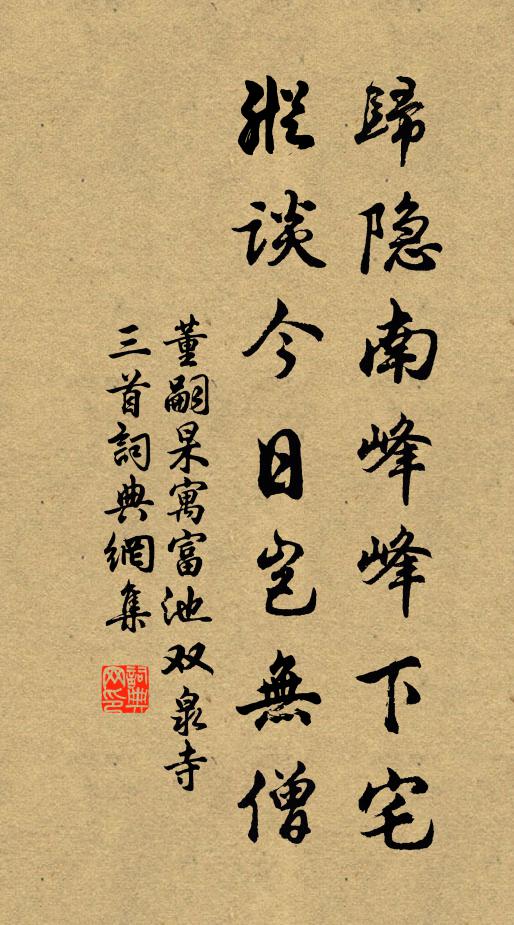 歸隐南峰峰下宅
縱谈今日岂無僧
董嗣杲寓富池双泉寺
三首詞典網集
詞典网印